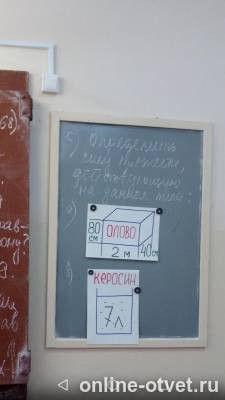 5) Определить
силу тяжести,
действующую
на данное тело:
а)
80 см
ОЛОВО
2 м
40 см
в)
КЕРОСИН
7 л
online-otvet.ru